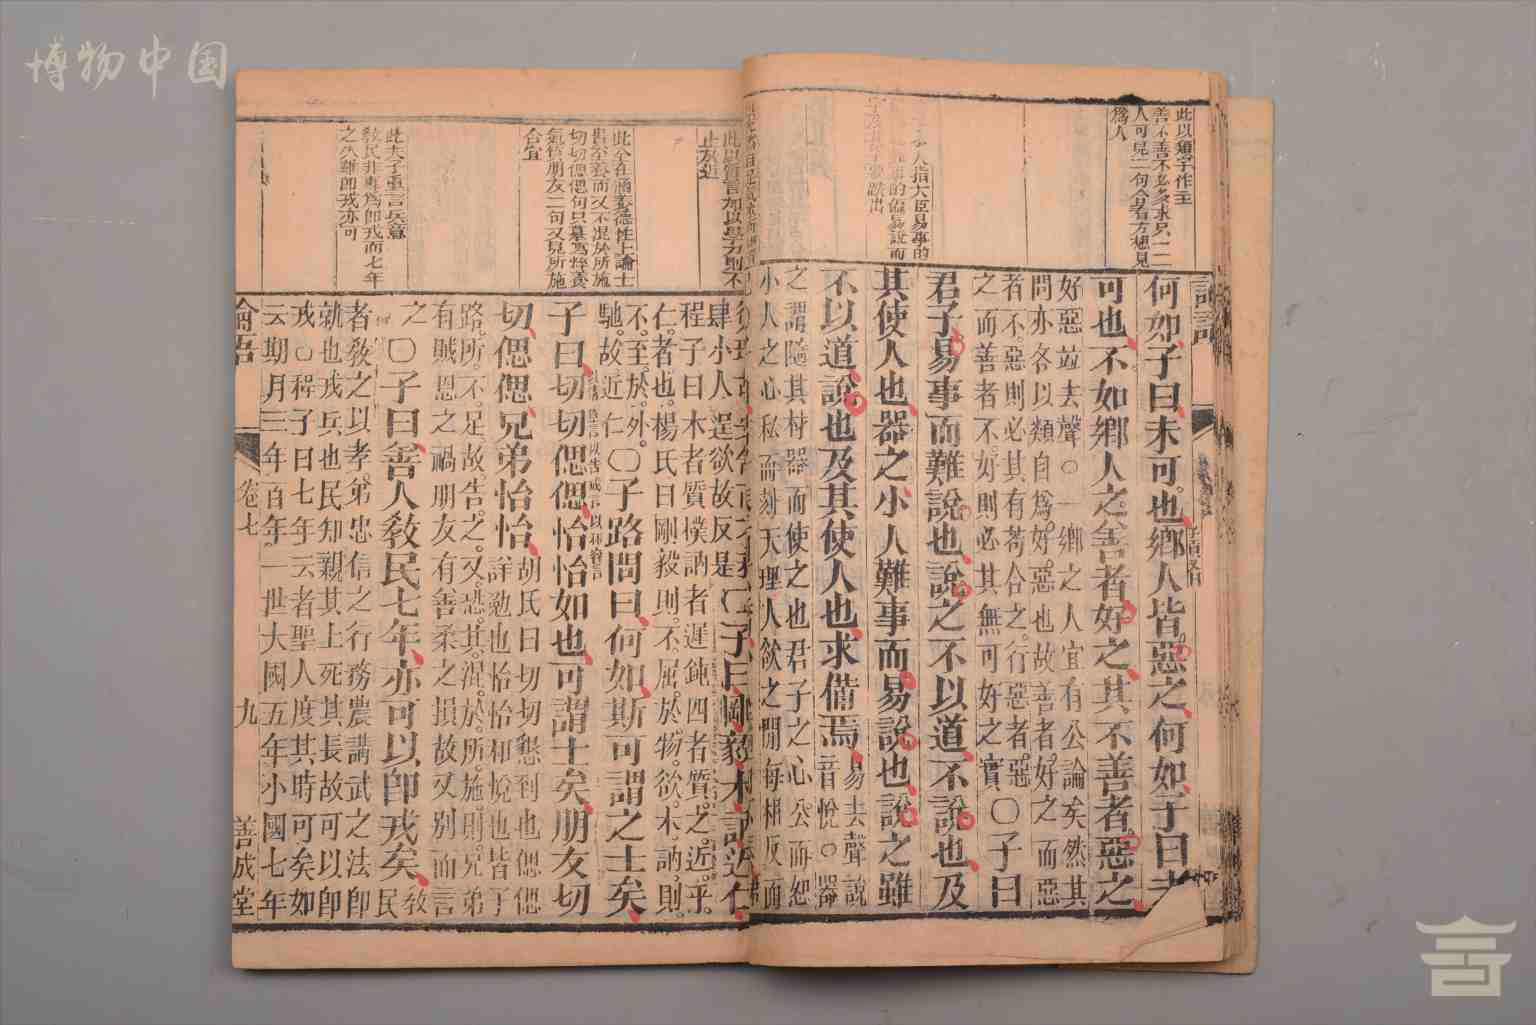 博物中国
此以類字作主
善不善不必多求只一二
人可見二句合看方想見
為人
人指大臣易事的
的偏易說而
何如子曰未可也鄉人皆惡之何如子曰未
可也不如鄉人之善者好之其不善者惡之
好惡並去聲○一鄉之人宜有公論矣然其
間亦各以類自為好惡也故善者好之而惡
者不惡則必其有苟合之行惡者惡
之而善者不好則必其無可好之實○子曰
君子易事而難說也說之不以道不說也及
其使人也器之小人難事而易說也說之雖
不以道說也及其使人也求備焉
易去聲說
音悅○器
之謂隨其材器而使之也君子之心公而恕
小人之心私而刻天理人欲之間每相反而
此以質言加以學力則不
止於近
此全在涵養德性上論士
貴至養而又不混於所施
切切偲偲句只摹寫粹養
氣質朋友二句又見所施
合宜
此夫子重言兵意
教民非專為即戎而七年
之久雖即戎亦可
肆小人逞欲故反是○子曰剛毅木訥近仁
程子曰木者質樸訥者遲鈍四者質之近乎
仁者也楊氏曰剛毅則不屈於物欲木訥則
不至於外
馳故近仁
○子路問曰何如斯可謂之士矣
子曰切切偲偲怡怡如也可謂士矣朋友切
切偲偲兄弟怡怡
胡氏曰切切懇到也偲偲
詳勉也怡怡和悅也皆子
路所不足故告之又恐其混於所施則兄弟
有賊恩之禍朋友有善柔之損故又別而言
之
○子曰善人教民七年亦可以即戎矣
教民
者教之以孝弟忠信之行務農講武之法即
就也戎兵也民知親其上死其長故可以即
戎○程子曰七年云者聖人度其時可矣如
云期月三年百年一世大國五年小國七年
論語
卷七
九
善成堂